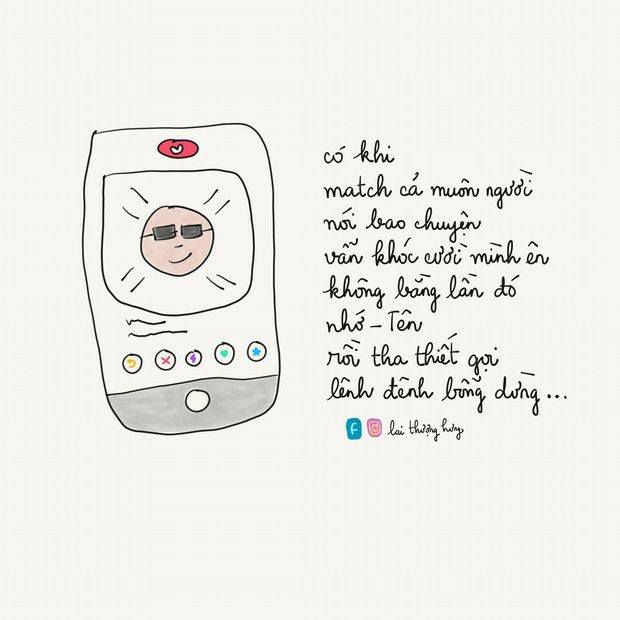 có khi
match cả muôn người
nói bao chuyện
vẫn khóc cười mình ên
không bằng lần đó
nhớ - Tên
rồi tha thiết gọi
lênh đênh bỗng dừng...
lai thượng hưng